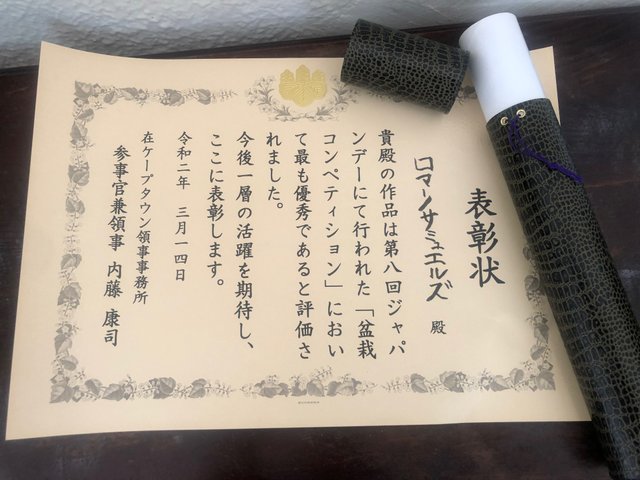 表彰状
ロマーノサミュエルズ 殿
貴殿の作品は第八回ジャパ
ンデーにて行われた「盆栽
コンペティション」におい
て最も優秀であると評価さ
れました。
今後一層の活躍を期待し、
ここに表彰します。
令和二年 三月一四日
在ケープタウン領事事務所
参事官兼領事 内藤 康司